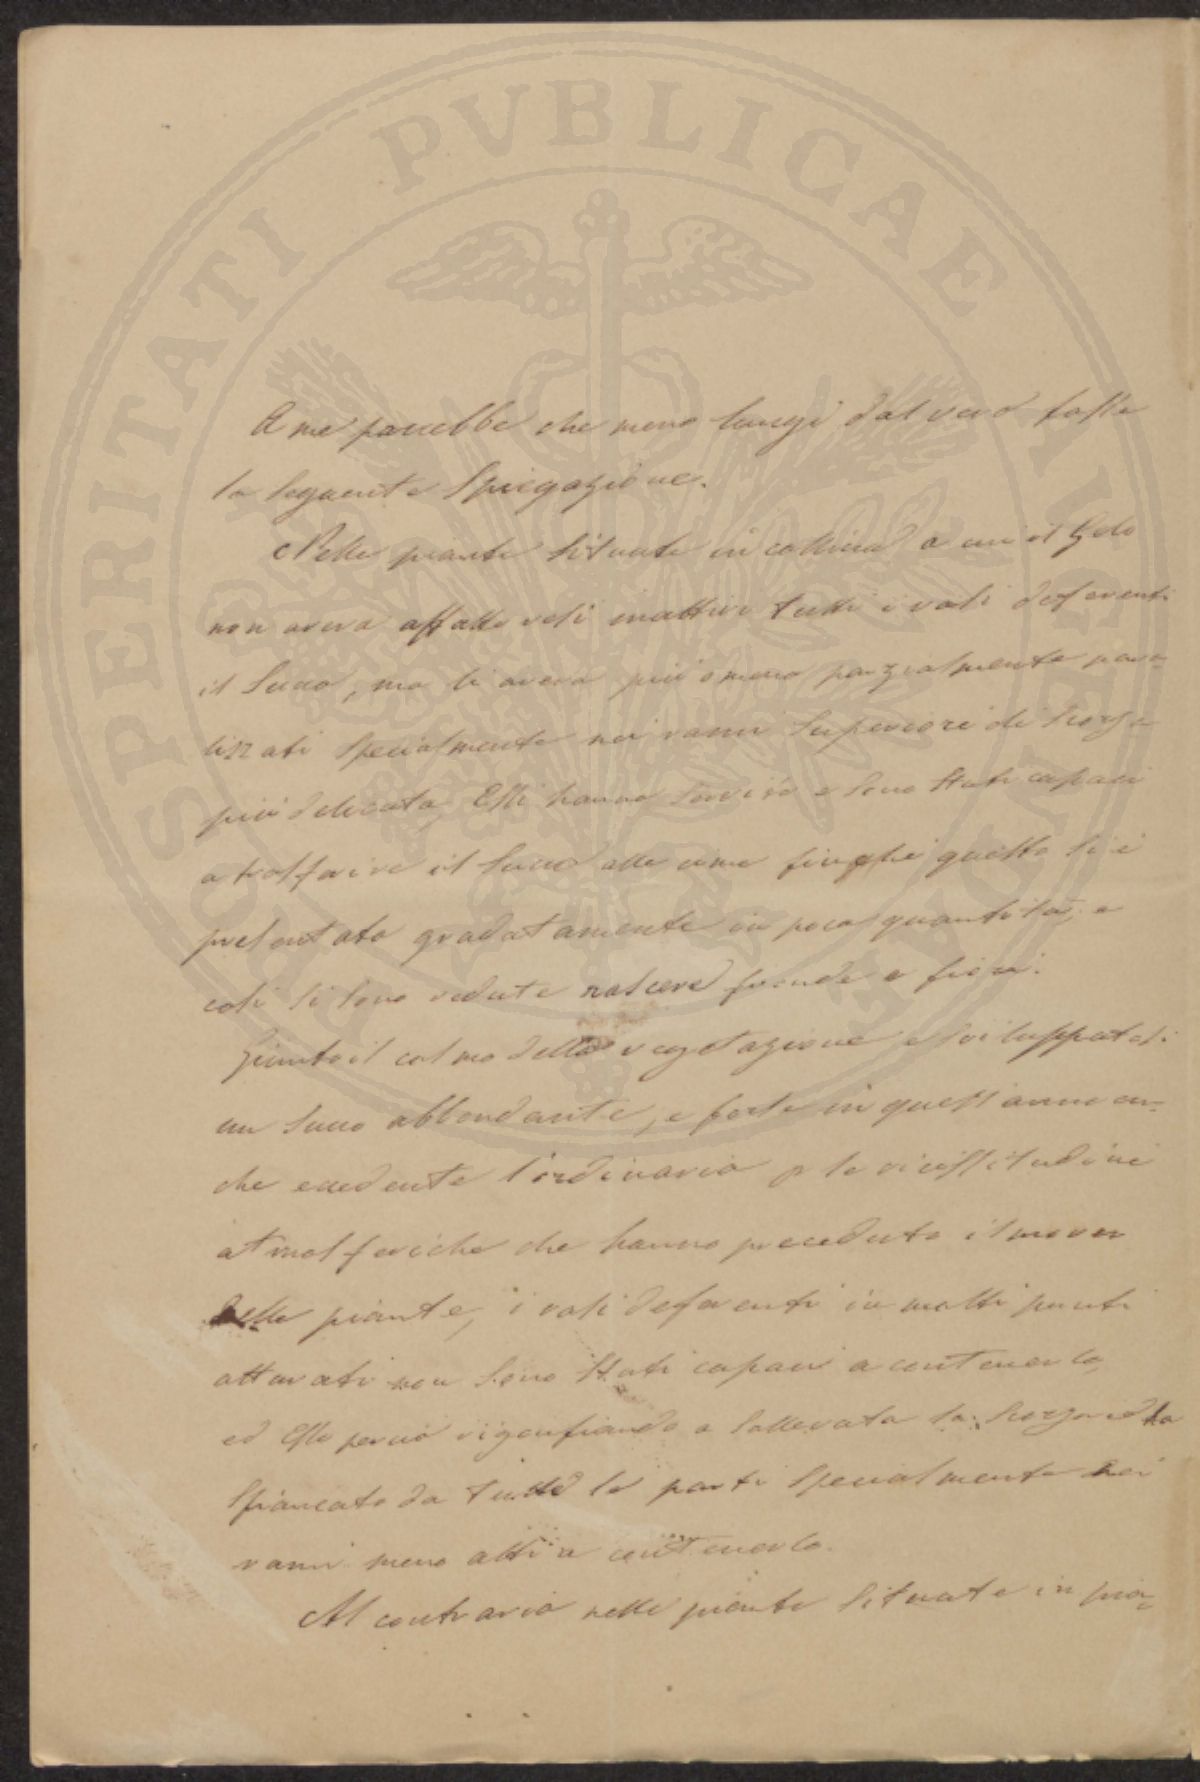 PROSPERITATI PVBLICAE AVGENDAE
A me parrebbe che meno lungi dal vero fosse
la seguente spiegazione.
Nelle piante situate in collina a cui il Gelo
non aveva affatto resi inattivi tutti i vasi deferenti
il succo, ma li aveva più o meno parzialmente para=
lizzati specialmente nei rami superiori di scorza
più delicata, Essi hanno servito e sono stati capaci
a trasferire il succo alle cime finche questo si è
presentato gradatamente in poca quantità; e
così si sono vedute nascere fronde e fiori.
Giunto il colmo della vegetazione e sviluppatosi
un succo abbondante, e forse in quest'anno an=
che eccedente l'ordinario p le vicissitudini
atmosferiche che hanno preceduto il mover
delle piante, i vasi deferenti in molti punti
otturati non sono stati capaci a contenerlo,
ed Esso perciò rigonfiando a sollevata la scorza ed ha
spiancato da tutte le parti specialmente nei
rami meno atti a contenerlo.
Al contrario nelle piante situate in pia=